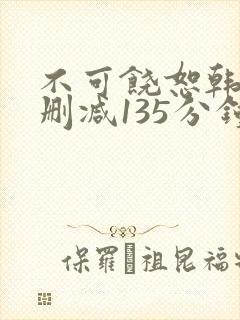 不可饶恕韩
删减135分钟
保罗·祖昆福